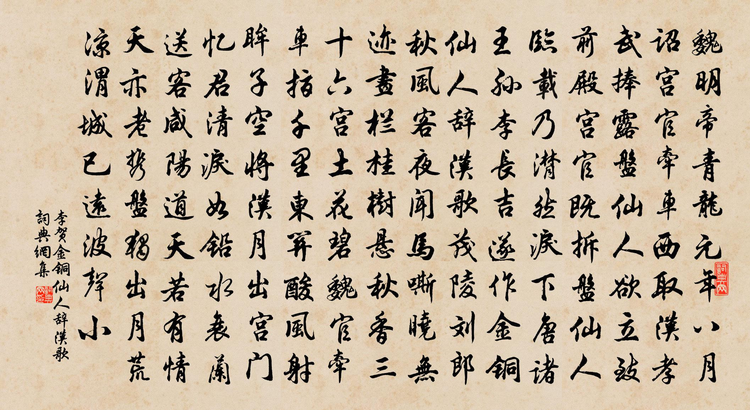 魏明帝青龍元年八月
詔宮官牽車西取漢孝
武捧露盤仙人欲立致
前殿宮官既拆盤仙人
臨載乃潸然淚下唐諸
王孫李長吉遂作金銅
仙人辞漢歌茂陵刘郎
秋風客夜聞馬嘶曉無
迹畫栏桂樹悬秋香三
十六宮土花碧魏官牽
車指千里東関酸風射
眸子空將漢月出宮門
忆君清淚如鉛水衰蘭
送客咸陽道天若有情
天亦老携盤獨出月荒
涼渭城已遠波聲小
李賀金銅仙人辞漢歌
詞典網集